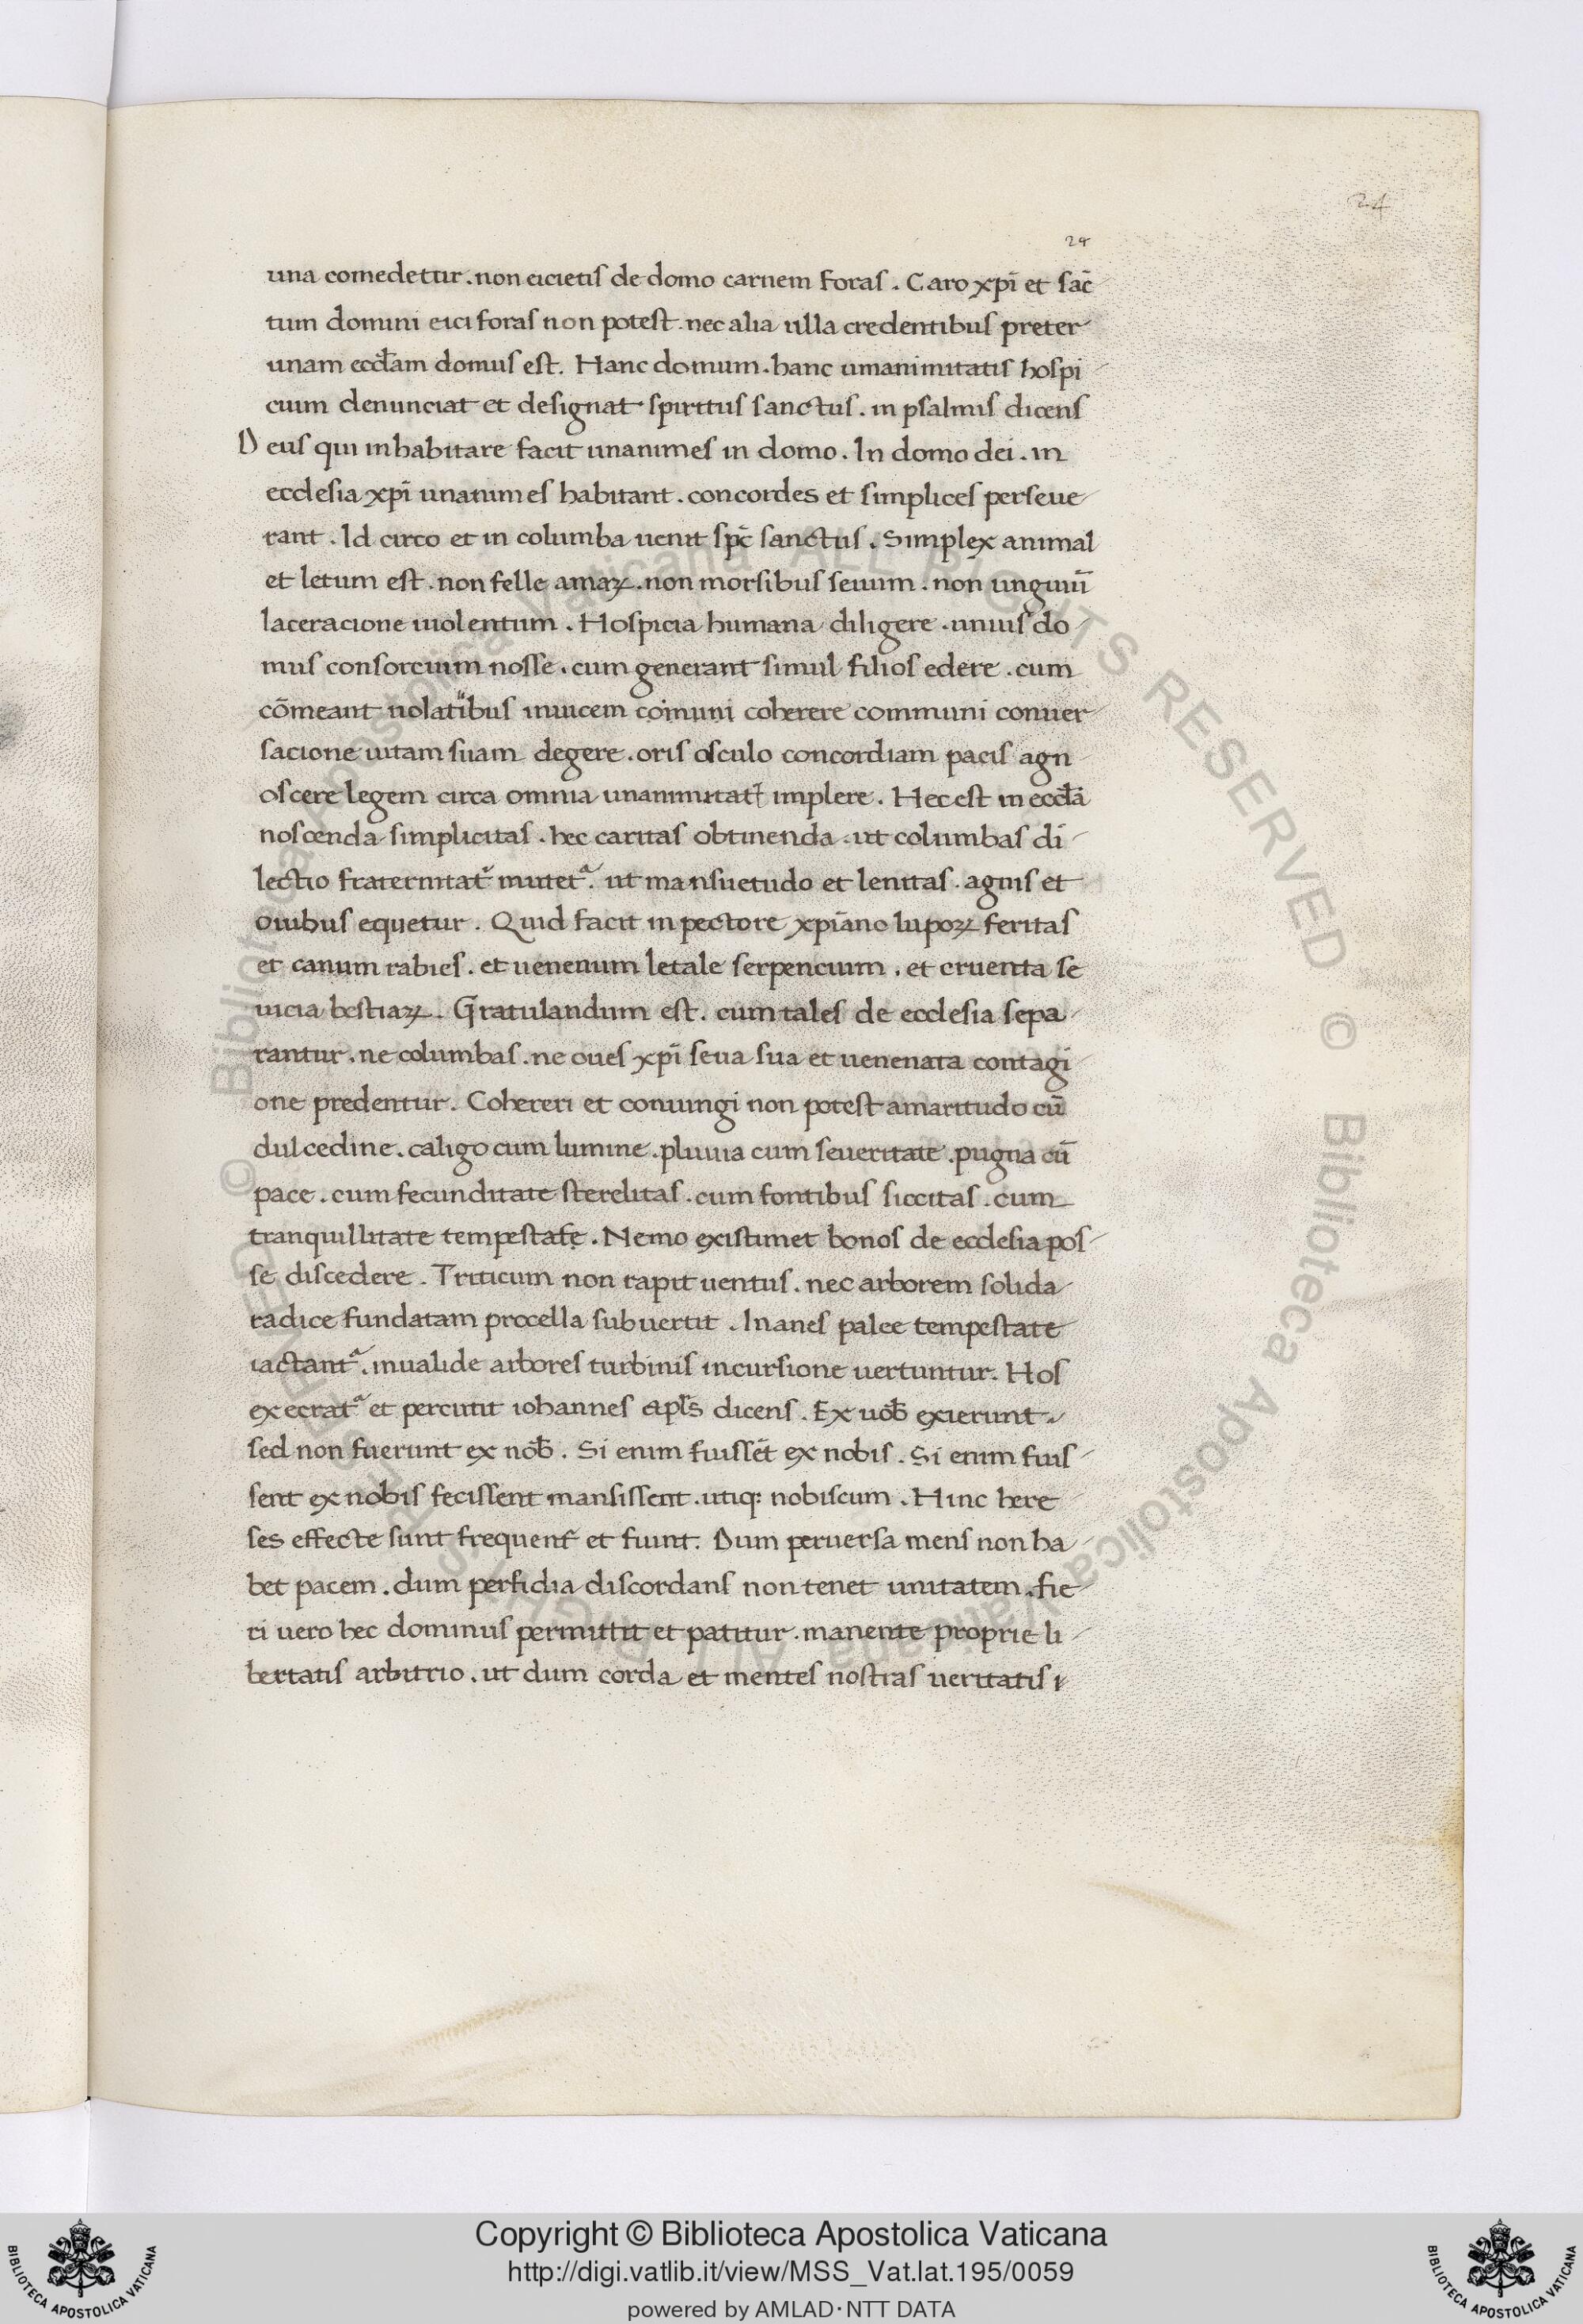 24
24
una comedetur . non eicietis de domo carnem foras . Caro xpī et sāc
tum domini eici foras non potest . nec alia ulla credentibus preter
unam eccl̄am domus est . Hanc domum . hanc unanimitatis hospi
cium denunciat et designat spiritus sanctus . in psalmis dicens
Deus qui inhabitare facit unanimes in domo . In domo dei . in
ecclesia xpī unanimes habitant . concordes et simplices perseue
rant . Id circo et in columba uenit sp̄c sanctus . Simplex animal
et letum est . non felle amaꝝ . non morsibus seuum . non unguiū
laceracione uiolentum . Hospicia humana diligere . unius do
mus consorcium nosse . cum generant simul filios edere . cum
cōmeant uolatibus inuicem comuni coherere communi conuer
sacione uitam suam degere . oris osculo concordiam pacis agn
oscere legem circa omnia unanimitat implere . Hec est in eccl̄a
noscenda simplicitas . hec caritas obtinenda . ut columbas di
lectio fraternitat mutet . ut mansuetudo et lenitas . agnis et
ouibus equetur . Quid facit in pectore xpīano lupoꝝ feritas
et canum rabies . et uenenum letale serpencium . et cruenta se
uicia bestiaꝝ . Gratulandum est . cum tales de ecclesia sepa
rantur . ne columbas . ne oues xpī seua sua et uenenata contagi
one predentur . Cohereri et coniungi non potest amaritudo cū
dulcedine . caligo cum lumine . pluuia cum seueritate . pugna cū
pace . cum fecunditate sterelitas . cum fontibus siccitas . cum
tranquillitate tempestate . Nemo existimet bonos de ecclesia pos
se discedere . Triticum non rapit uentus . nec arborem solida
radice fundatam procella subuertit . Inanes palee tempestate
iactant . inualide arbores turbinis incursione uertuntur . Hos
execrat et percutit iohannes apl̄s dicens . Ex uob̄ exierunt .
sed non fuerunt ex nob̄ . Si enim fuissēt ex nobis . Si enim fuis
sent ex nobis fecissent mansissent . utiq: nobiscum . Hinc here
ses effecte sunt frequent et fiunt . Dum peruersa mens non ha
bet pacem . dum perfidia discordans non tenet unitatem . fie
ri uero hec dominus permittit et patitur . manente proprie li
bertatis arbitrio . ut dum corda et mentes nostras ueritatis i
© Biblioteca Apostolica Vaticana ALL RIGHTS RESERVED
© Biblioteca Apostolica Vaticana ALL RIGHTS RESERVED
Copyright © Biblioteca Apostolica Vaticana
http://digi.vatlib.it/view/MSS_Vat.lat.195/0059
powered by AMLAD·NTT DATA
BIBLIOTECA APOSTOLICA VATICANA
BIBLIOTECA APOSTOLICA VATICANA